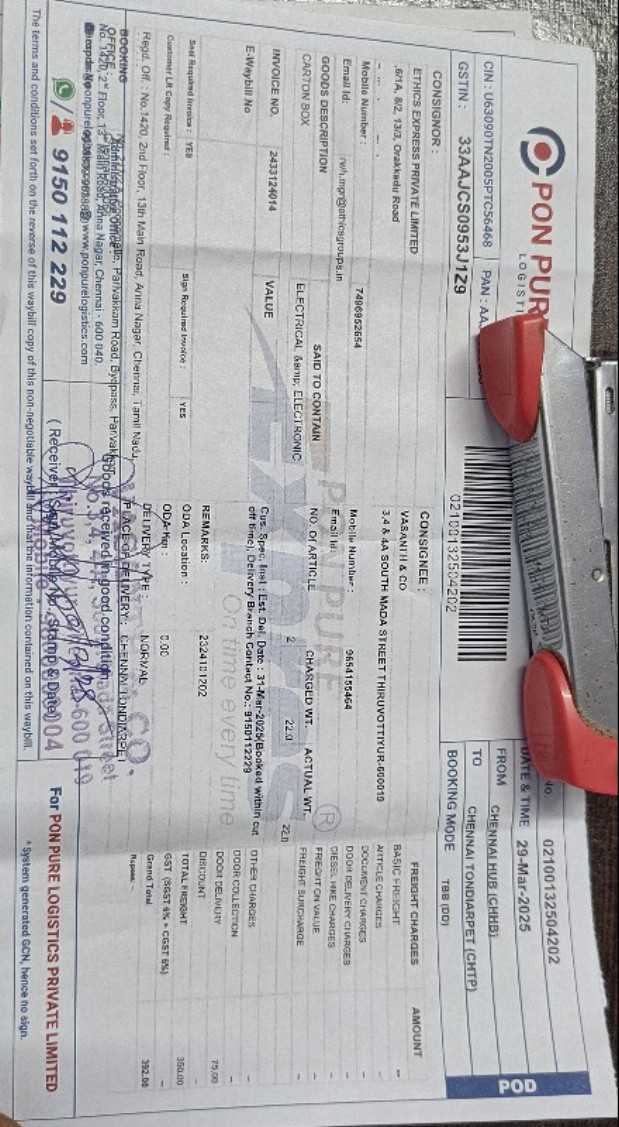 PON PURE
LOGISTI
CIN : U63090TN2005PTC56468
PAN : AA
GSTIN : 33AAJCS0953J1Z9
02100132504202
02100132504202
DATE & TIME 29-Mar-2025
FROM CHENNAI HUB (CHHB)
TO CHENNAI TONDIARPET (CHTP)
BOOKING MODE TBB (DD)
POD
CONSIGNOR :
ETHICS EXPRESS PRIVATE LIMITED
,6/1A, 8/2, 13/3, Orakkadu Road
Mobile Number : 7496952654
Email Id: rwh.mgr@ethicsgroups.in
CONSIGNEE :
VASANTH & CO
3,4 & 4A SOUTH MADA STREET THIRUVOTTIYUR-600019
Mobile Number : 9654155464
Email Id:
GOODS DESCRIPTION SAID TO CONTAIN NO. OF ARTICLE CHARGED WT. ACTUAL WT.
CARTON BOX ELECTRICAL &amp; ELECTRONIC 2 22.0 22.0
INVOICE NO. 2433124014 VALUE
E-Waybill No
Cus. Spec. Inst : Est. Del. Date : 31-Mar-2025(Booked within cut
off time), Delivery Branch Contact No.: 9150112229
REMARKS: 2324101202
Seal Required Invoice : YES
Sign Required Invoice : YES
Customer LR Copy Required :
ODA Location :
ODA-Km : 0.00
DELIVERY TYPE : NORMAL
PLACE OF DELIVERY: CHENNAI TONDIARPET
FREIGHT CHARGES AMOUNT
BASIC FREIGHT --
ARTICLE CHARGES -
DOCUMENT CHARGES -
DOOR DELIVERY CHARGES -
DIESEL HIKE CHARGES -
FREIGHT ON VALUE -
FREIGHT SURCHARGE -
OTHER CHARGES -
DOOR COLLECTION -
DOOR DELIVERY 75.00
DISCOUNT -
TOTAL FREIGHT 350.00
GST (SGST 6% + CGST 6%) -
Grand Total 392.00
Rupees -
PON PURE
Express
On time every time
Regd. Off. : No.1420, 2nd Floor, 13th Main Road, Anna Nagar, Chennai, Tamil Nadu
BOOKING
OFFICE :
No. 1420, 2nd Floor, 13th Main Road, Anna Nagar, Chennai - 600 040.
www.ponpurelogistics.com
9150 112 229
Goods received in good condition
( Receiver Sign, Mobile No., Stamp & Date)
For PON PURE LOGISTICS PRIVATE LIMITED
The terms and conditions set forth on the reverse of this waybill copy of this non-negotiable waybill and that the information contained on this waybill.
* System generated GCN, hence no sign.